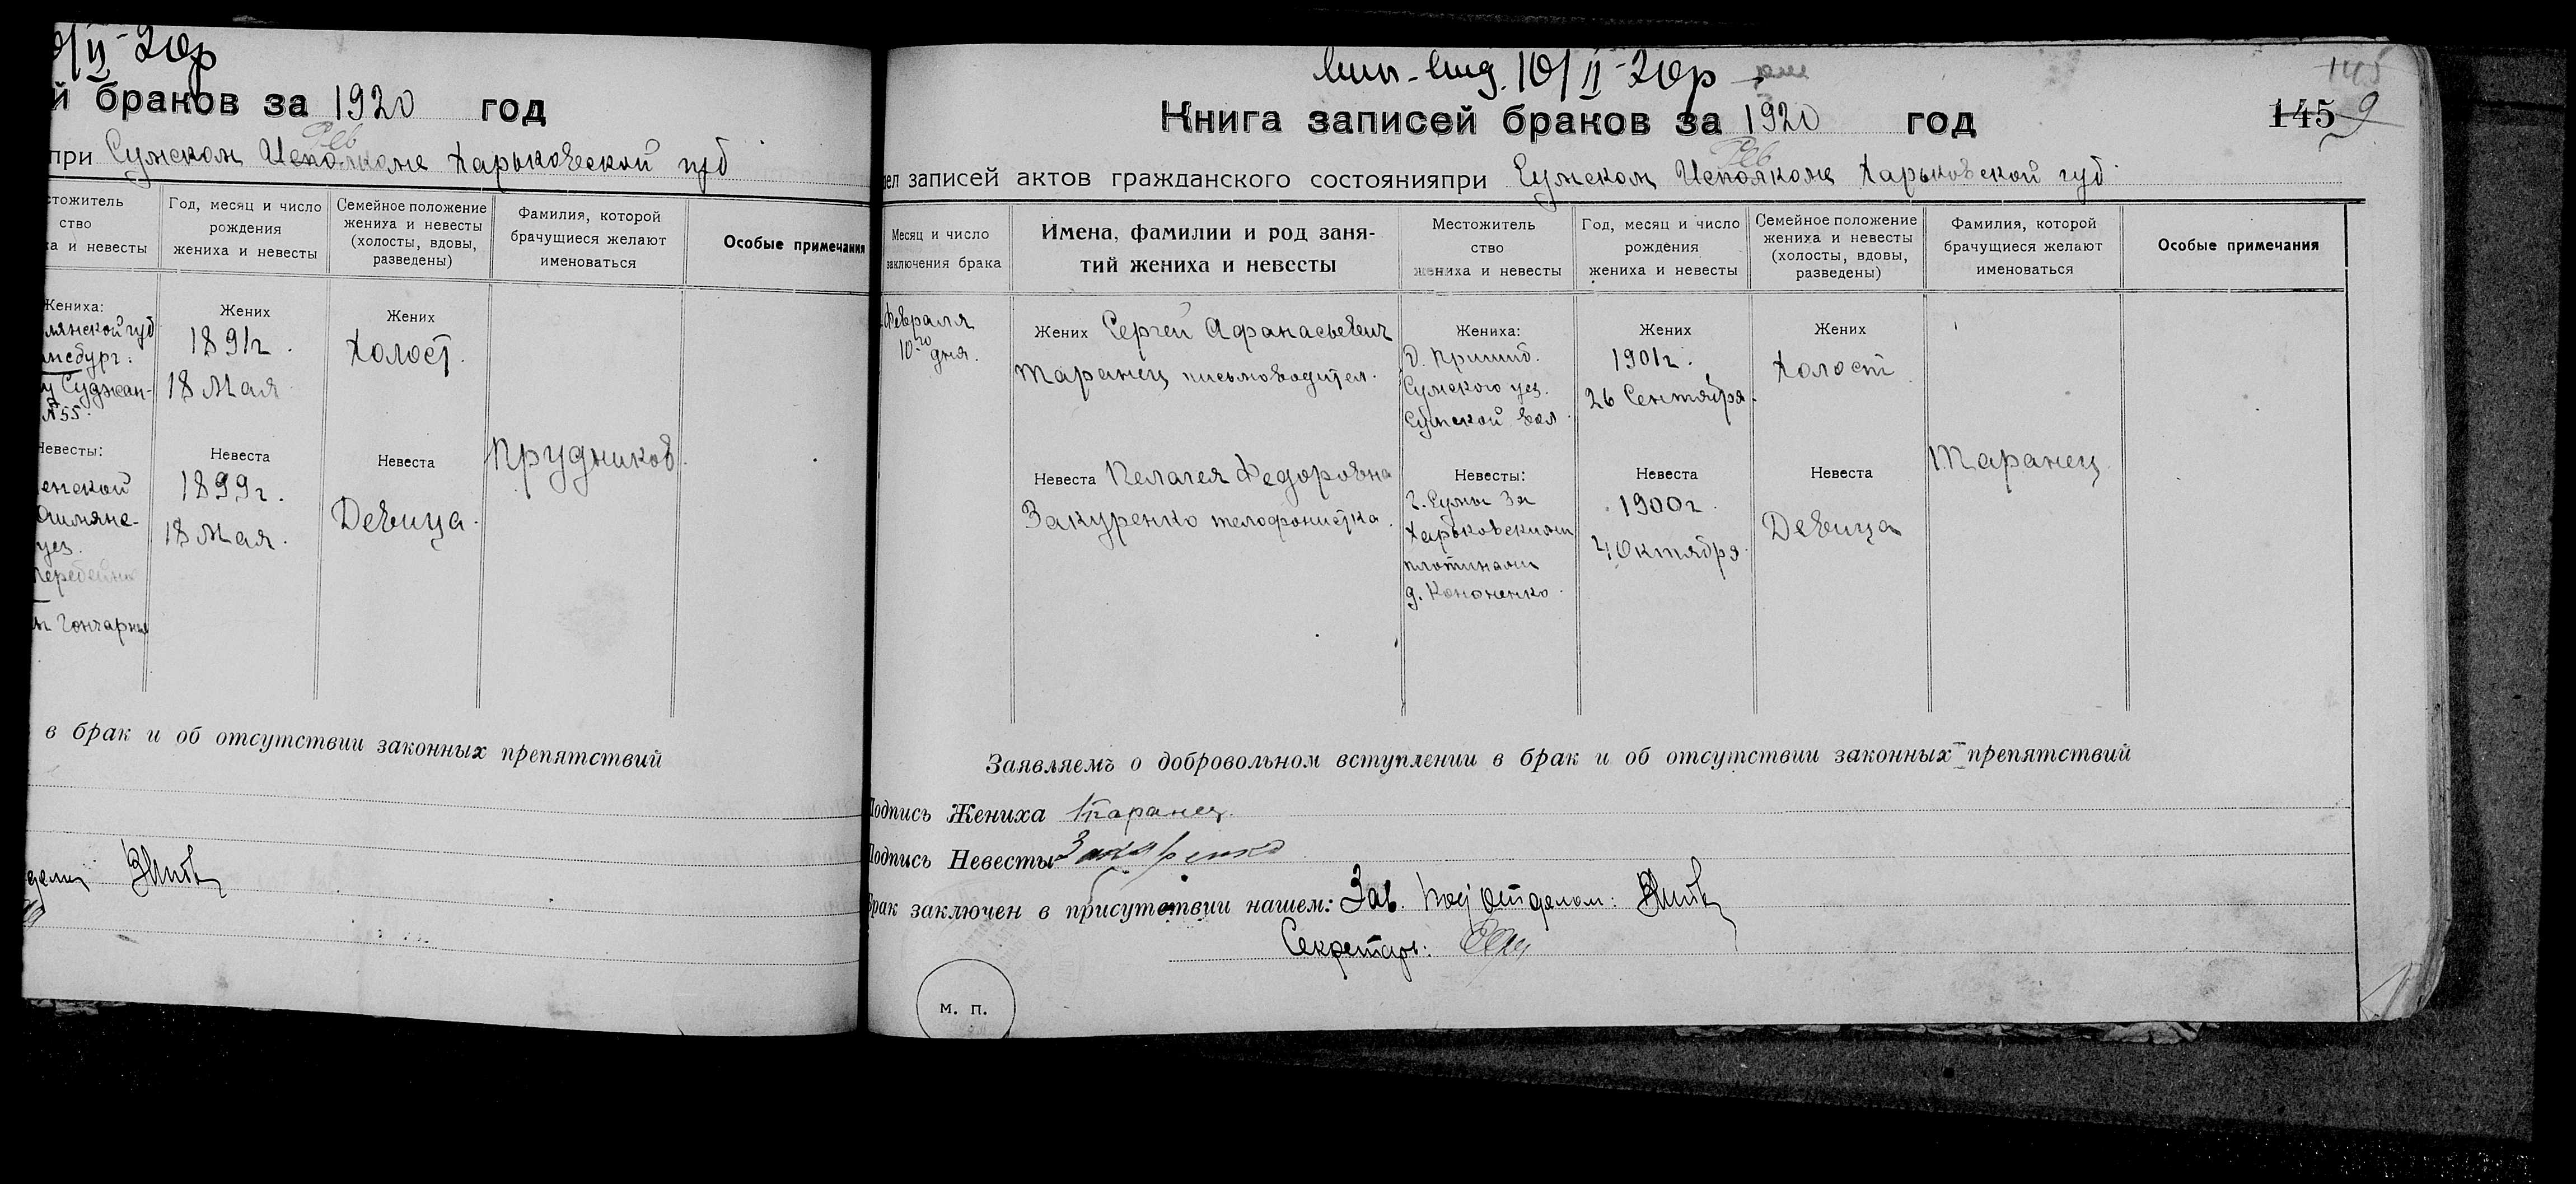 й браков за 1920 год
при Сумском Исполкоме Харьковской губ
Рев
стожитель
ство
ха и невесты
Год, месяц и число
рождения
жениха и невесты
Семейное положение
жениха и невесты
(холосты, вдовы,
разведены)
Фамилия, которой
брачущиеся желают
именоваться
Особые примечания
Жениха:
у Суджан-
№55.
Жених
1891г.
18 Мая
Жених
Холост.
Невесты:
енской
Ошмянс-
уез.
Невеста
1899г.
18 Мая.
Невеста
Девица.
Прудников.
в брак и об отсутствии законных препятствий
10/II-20р
145
Книга записей браков за 1920 год
145 9
дел записей актов гражданского состоянияпри Сумском Исполкоме Харьковской губ
Рев
Месяц и число
заключения брака
Имена, фамилии и род заня-
тий жениха и невесты
Местожитель
ство
жениха и невесты
Год, месяц и число
рождения
жениха и невесты
Семейное положение
жениха и невесты
(холосты, вдовы,
разведены)
Фамилия, которой
брачущиеся желают
именоваться
Особые примечания
Февраля
10го дня.
Жених Сергей Афанасьевич
Таранец письмоводител.
Жениха:
Сумского уез.
Сумской вол.
Жених
1901г.
26 Сентября.
Жених
Холост
Невеста Пелагея Федоровна
Закуренко телефонистка.
Невесты:
г. Сумы За
Харьковскими
плотинами
д. Кононенко.
Невеста
1900г.
4 Октября.
Невеста
Девица
Таранец.
Заявляемъ о добровольном вступлении в брак и об отсутствии законных препятствий
Подпись Жениха Таранец.
Подпись Невесты Закуренко
Брак заключен в присутствии нашем: Зав. Подотделом:
Секретарь:
м. п.